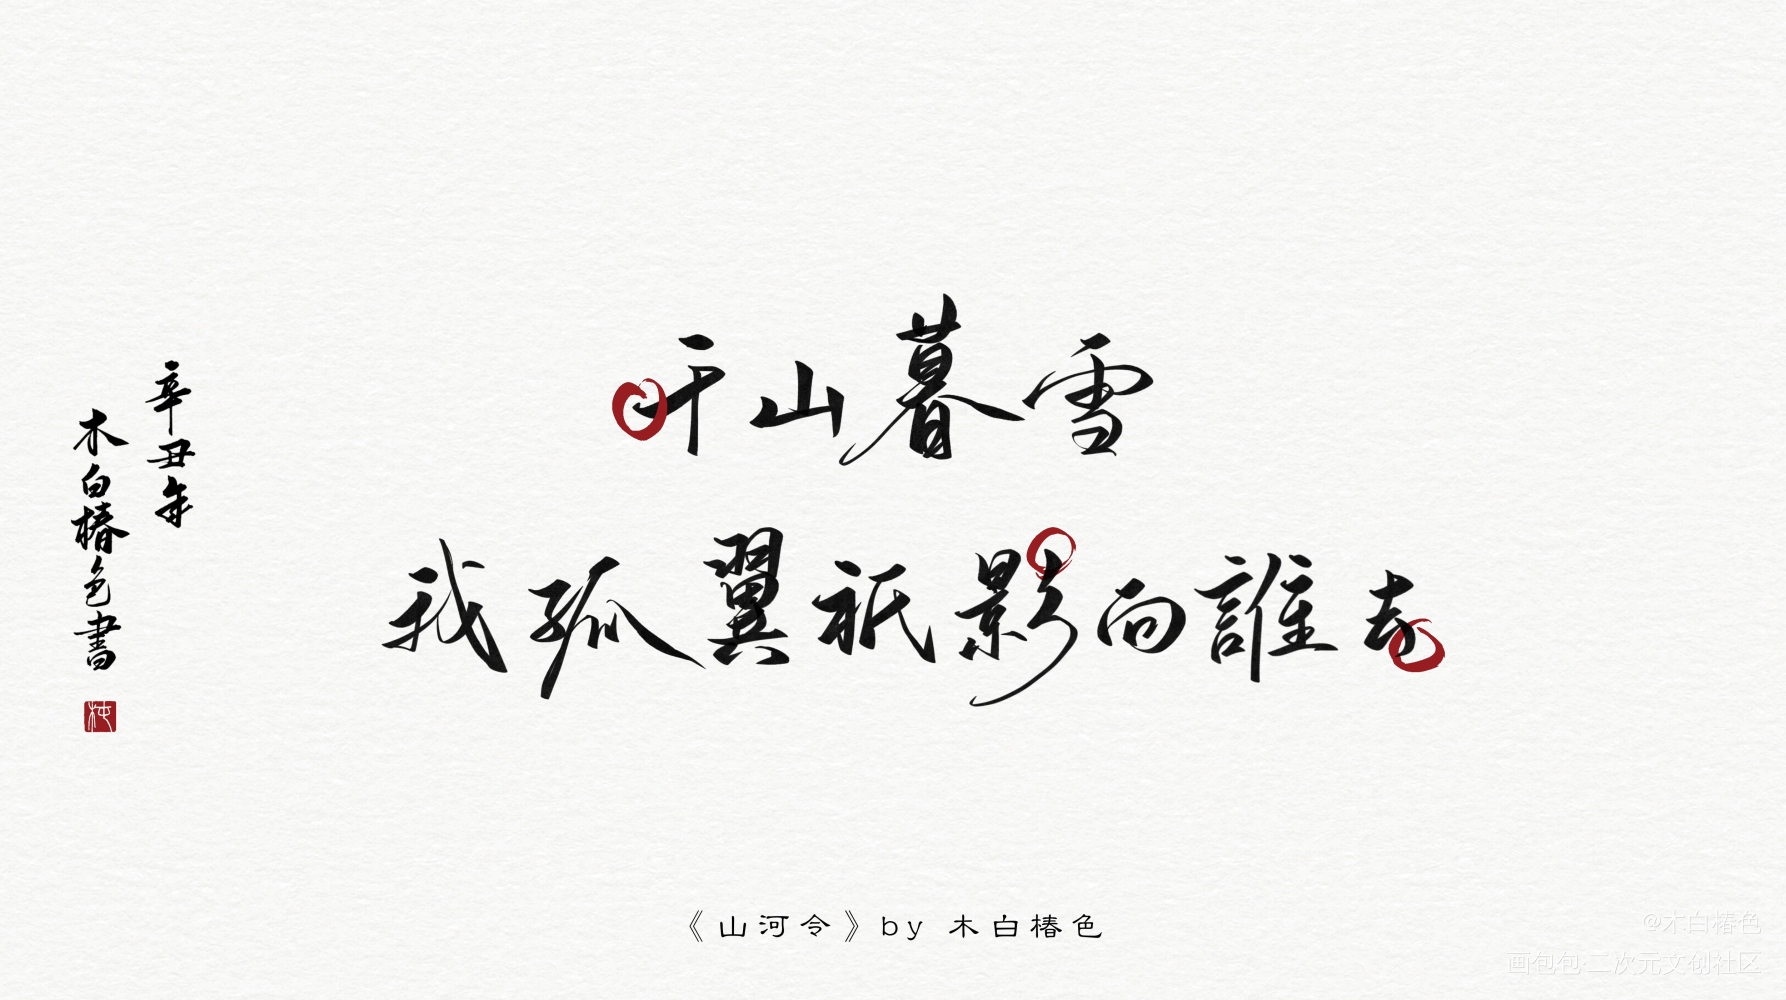 千山暮雪
我孤翼祇影向誰去
辛丑年
木白椿色書
《山河令》by 木白椿色
@木白椿色
画包包·二次元文创社区